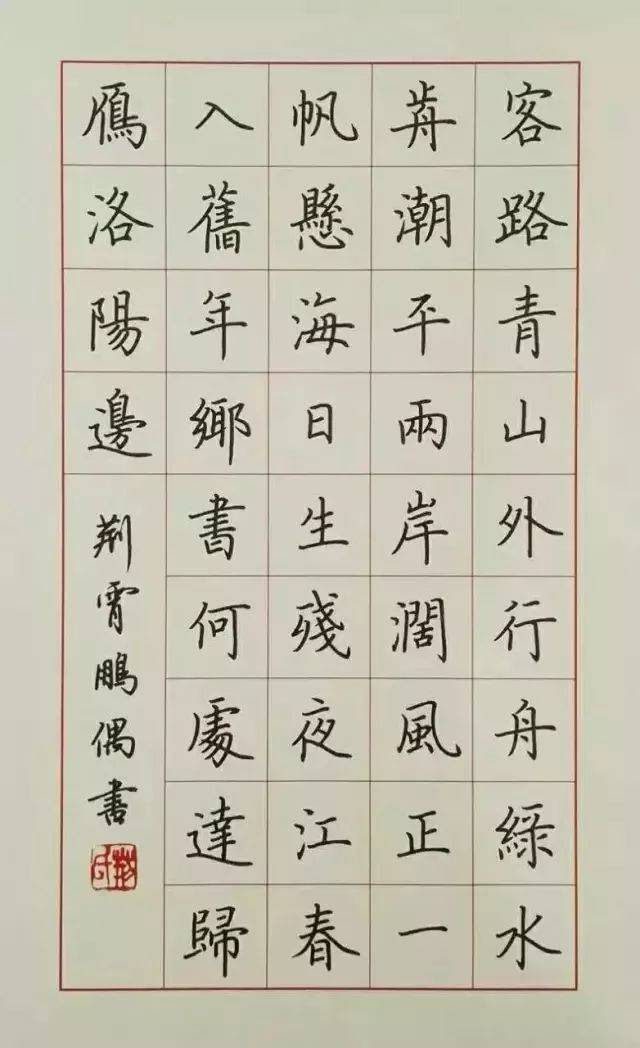 客路青山外行舟綠水
歬潮平兩岸闊風正一
帆懸海日生殘夜江春
入舊年鄉書何處達歸
鴈洛陽邊
荆霄鵬偶書